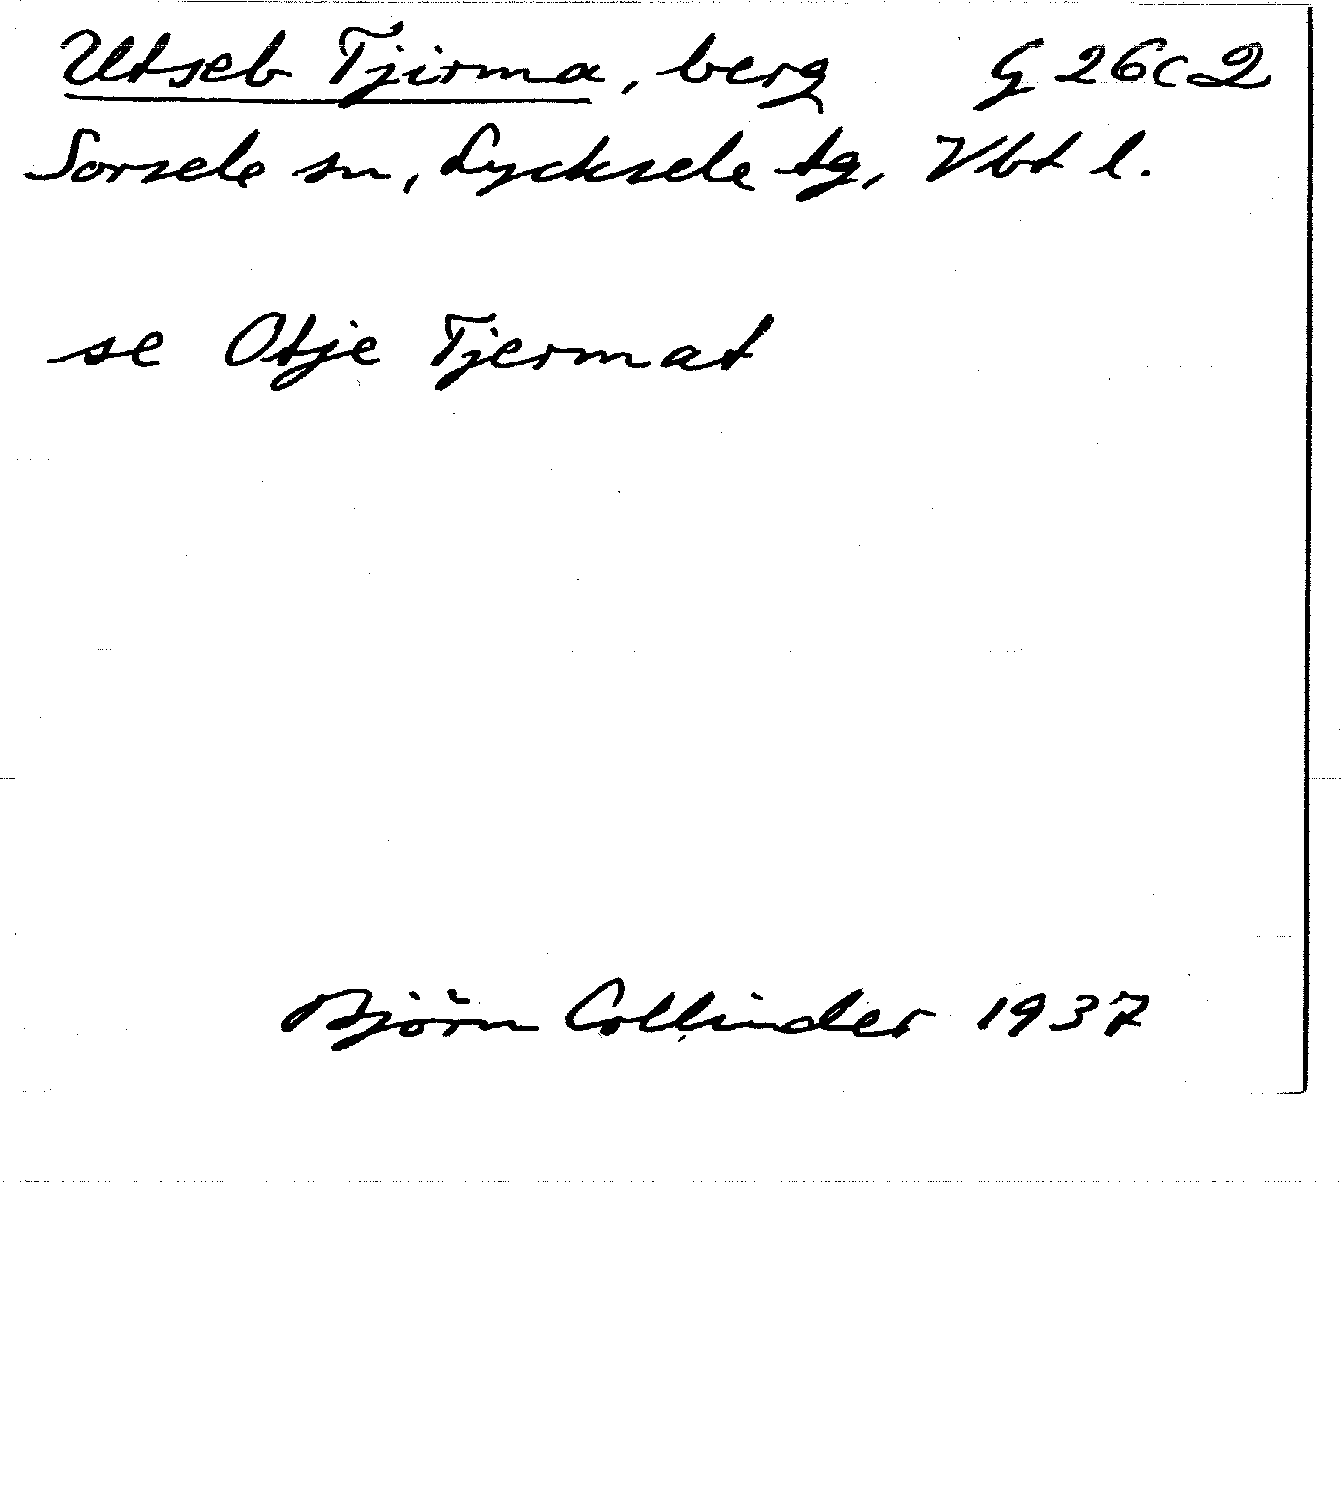 Utseb Tjirma, berg G 26 c 2
Sorsele sn, Lycksele tg, Vbt l.
se Otje Tjermat
Björn Collinder 1937